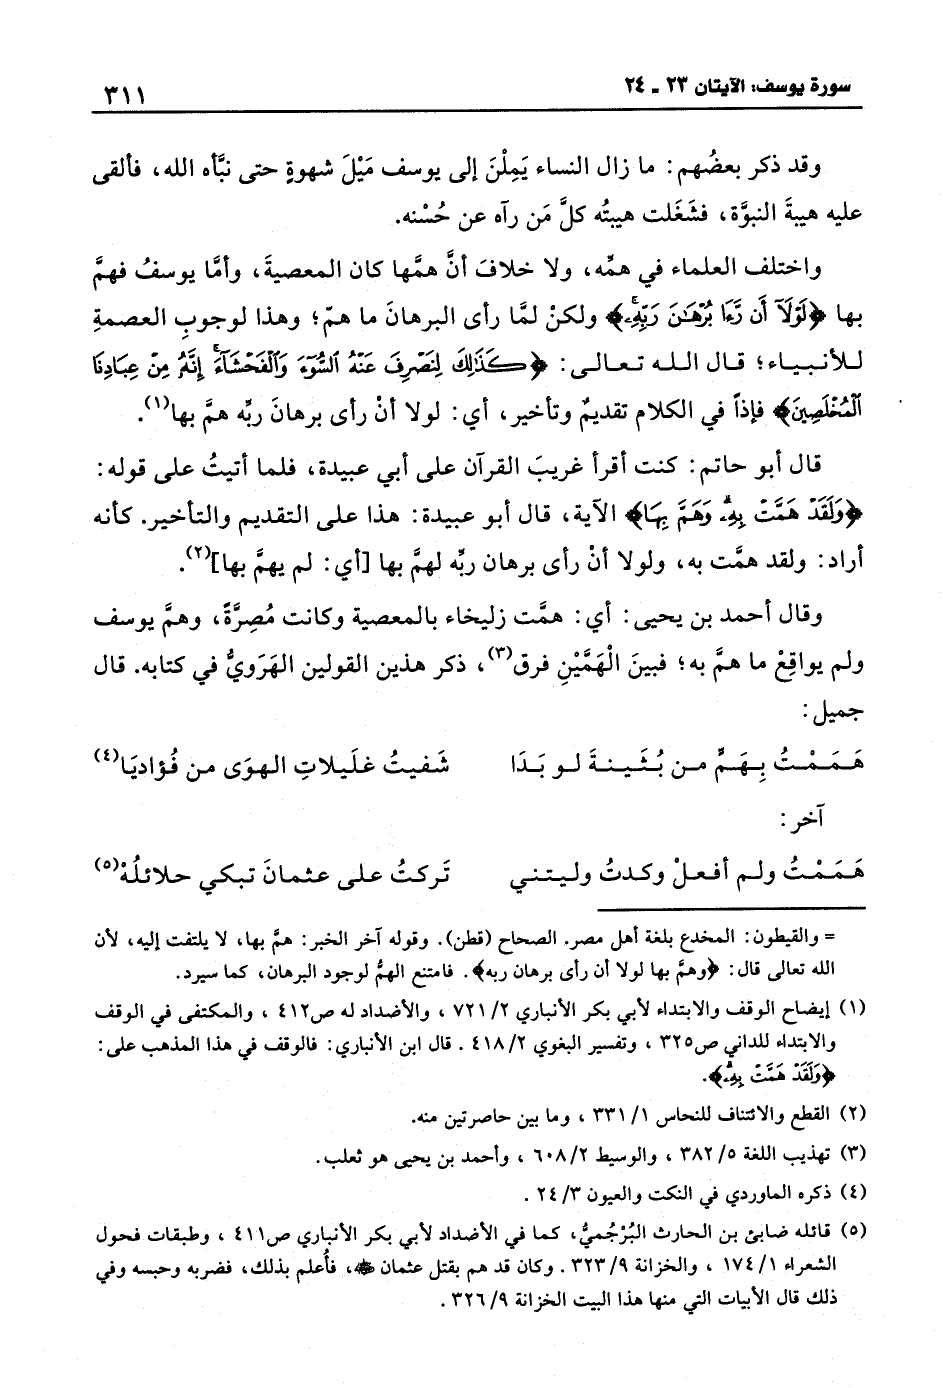 سورة يوسف: الآيتان ٢٣ - ٢٤
٣١١
وقد ذكر بعضُهم: ما زال النساء يَمِلْنَ إلى يوسف مَيْلَ شهوةٍ حتى نبَّأه الله، فألقى
عليه هيبةَ النبوَّة، فشَغَلت هيبتُه كلَّ مَن رآه عن حُسْنه.
واختلف العلماء في همِّه، ولا خلافَ أنَّ همَّها كان المعصيةَ، وأمَّا يوسفُ فهمَّ
بها ﴿لَوْلَآ أَن رَّءَا بُرْهَـٰنَ رَبِّهِۦ﴾ ولكنْ لمَّا رأى البرهانَ ما همّ؛ وهذا لوجوبِ العصمةِ
للأنبياء؛ قال الله تعالى: ﴿كَذَٰلِكَ لِنَصْرِفَ عَنْهُ ٱلسُّوٓءَ وَٱلْفَحْشَآءَ ۚ إِنَّهُۥ مِنْ عِبَادِنَا
ٱلْمُخْلَصِينَ﴾ فإذاً في الكلام تقديمٌ وتأخير، أي: لولا أنْ رأى برهانَ ربِّه همَّ بها(١).
قال أبو حاتم: كنت أقرأ غريبَ القرآن على أبي عبيدة، فلما أتيتُ على قوله:
﴿وَلَقَدْ هَمَّتْ بِهِۦ ۖ وَهَمَّ بِهَا﴾ الآية، قال أبو عبيدة: هذا على التقديم والتأخير. كأنه
أراد: ولقد همَّت به، ولولا أنْ رأى برهان ربِّه لهمَّ بها [أي: لم يهمَّ بها](٢).
وقال أحمد بن يحيى: أي: همَّت زليخاء بالمعصية وكانت مُصِرَّةً، وهمَّ يوسف
ولم يواقِعْ ما همَّ به؛ فبينَ الْهَمَّيْنِ فرق(٣)، ذكر هذين القولين الهَرَويُّ في كتابه. قال
جميل:
هَمَمْتُ بِهَمٍّ من بُثَينةَ لو بَدَا شَفيتُ غَليلاتِ الهوَى من فُؤاديَا(٤)
آخر:
هَمَمْتُ ولم أفعلْ وكدتُ وليتني تَركتُ على عثمانَ تبكي حلائلُهْ(٥)
= والقيطون: المخدع بلغة أهل مصر. الصحاح (قطن). وقوله آخر الخبر: همَّ بها، لا يلتفت إليه، لأن
الله تعالى قال: ﴿وهمَّ بها لولا أن رأى برهان ربه﴾. فامتنع الهمُّ لوجود البرهان، كما سيرد.
(١) إيضاح الوقف والابتداء لأبي بكر الأنباري ٢/ ٧٢١ ، والأضداد له ص٤١٢ ، والمكتفى في الوقف
والابتداء للداني ص٣٢٥ ، وتفسير البغوي ٢/ ٤١٨ . قال ابن الأنباري: فالوقف في هذا المذهب على:
﴿وَلَقَدْ هَمَّتْ بِهِۦ ۖ﴾.
(٢) القطع والائتناف للنحاس ١/ ٣٣١ ، وما بين حاصرتين منه.
(٣) تهذيب اللغة ٥/ ٣٨٢ ، والوسيط ٢/ ٦٠٨ ، وأحمد بن يحيى هو ثعلب.
(٤) ذكره الماوردي في النكت والعيون ٣/ ٢٤ .
(٥) قائله ضابئ بن الحارث البُرْجُميُّ، كما في الأضداد لأبي بكر الأنباري ص٤١١ ، وطبقات فحول
الشعراء ١/ ١٧٤ ، والخزانة ٩/ ٣٢٣ . وكان قد هم بقتل عثمان ﷺ، فأُعلم بذلك، فضربه وحبسه وفي
ذلك قال الأبيات التي منها هذا البيت الخزانة ٩/ ٣٢٦ .